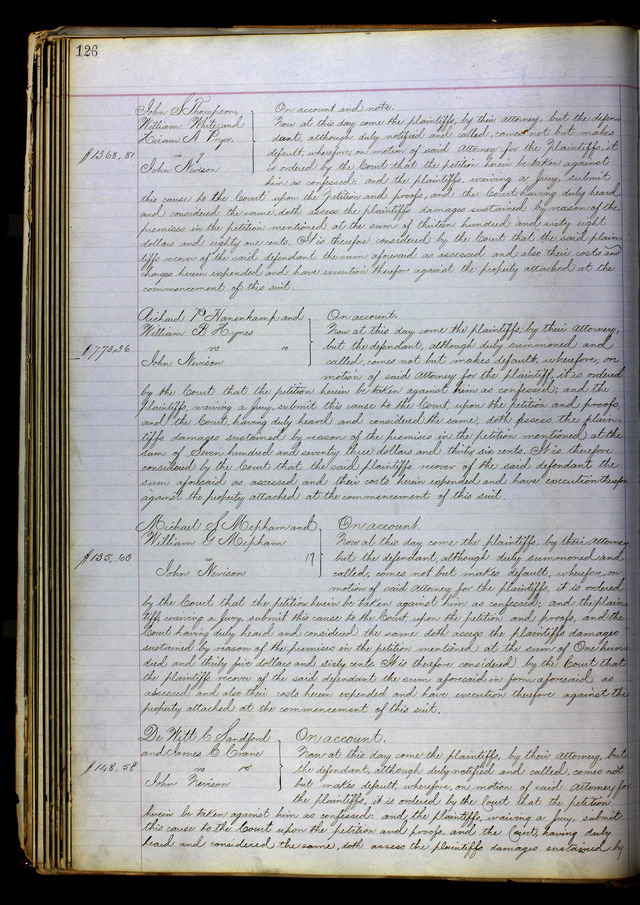 126
John S. Thompson, On account and note.
William White and Now at this day come the plaintiffs, by their Attorney, but the defen-
Hiram A. Pryor. dant, although duly notified and called, comes not but makes
$1368,81 vs 7 default, wherefore, on motion of said Attorney for the Plaintiffs, it
John Nevison is ordered by the Court that the petition herein be taken against
him as confessed; and the plaintiffs, waiving a Jury, submit
this cause to the Court upon the Petition and proofs, and the Court having duly heard
and considered the same, doth assess the plaintiffs damages sustained by reason of the
premises in the petition mentioned at the sum of thirteen hundred and sixty eight
dollars and eighty one cents. It is therefore considered by the Court that the said plain-
tiffs recover of the said defendant the sum aforesaid as assessed and also their costs and
charges herein expended and have execution therefor against the property attached at the
commencement of this suit.
Richard P. Hanenkamp and On account.
William B. Hynes Now at this day come the plaintiffs, by their Attorney,
$773,36 vs but the defendant, although duly summoned and
John Nevison called, comes not but makes default, wherefore, on
motion of said Attorney for the plaintiff, it is ordered
by the Court that the petition herein be taken against him as confessed; and the
plaintiffs, waiving a Jury, submit this cause to the Court, upon the petition and proofs,
and the Court, having duly heard and considered the same, doth assess the plain-
tiffs damages sustained by reason of the premises in the petition mentioned at the
Sum of Seven hundred and seventy three dollars and thirty six cents. It is therefore
considered by the Court that the said plaintiffs recover of the said defendant the
sum aforesaid as assessed, and their costs herein expended and have execution therefor
against the property attached at the commencement of this suit.
Michael S. Mepham and On account.
William G. Mepham Now at this day come the plaintiffs, by their Attorney
$135,60 vs 17 but the defendant, although duly summoned and
John Nevison called, comes not but makes default, wherefore, on
motion of said Attorney for the plaintiffs, it is ordered
by the Court that the petition herein be taken against him as confessed; and the plain-
tiffs, waiving a Jury, submit this cause to the Court upon the petition and proofs, and the
Court having duly heard and considered the same doth assess the plaintiffs damages
sustained by reason of the premises in the petition mentioned at the sum of One hun-
dred and thirty five dollars and sixty cents. It is therefore considered by the Court that
the plaintiffs recover of the said defendant the sum aforesaid in form aforesaid as
assessed and also their costs herein expended and have execution therefor against the
property attached at the commencement of this suit.
De Witt C. Sandford On account.
and James C. Crane Now at this day come the plaintiffs, by their Attorney, but
$148,58 vs the defendant, although duly notified and called, comes not
John Nevison but makes default, wherefore, on motion of said Attorney for
the plaintiffs, it is ordered by the Court that the petition
herein be taken against him as confessed; and the plaintiffs, waiving a Jury, submit
this cause to the Court upon the petition and proofs, and the Court, having duly
heard and considered the same, doth assess the plaintiffs damages sustained by